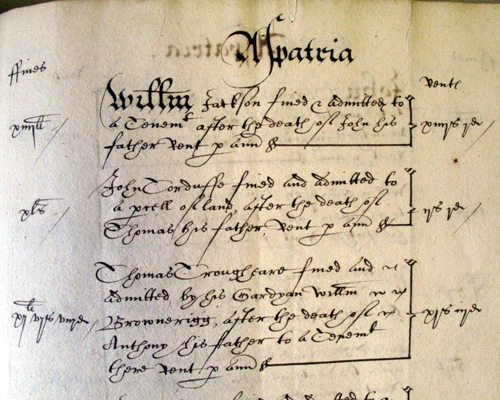 Aspatria
ffines
Rent
Willm Jackson fined & admitted to
a Tenemt after the death of John his
father Rent p ann &
John Torduffe fined and admitted to
a pcell of land, after the death of
Thomas his father, Rent p ann &
xls
Thomas Trougheare fined and
admitted by his Gardyan Willm
Brownerigg, after the death of
Anthony his father to a Tenemt
there Rent p ann &